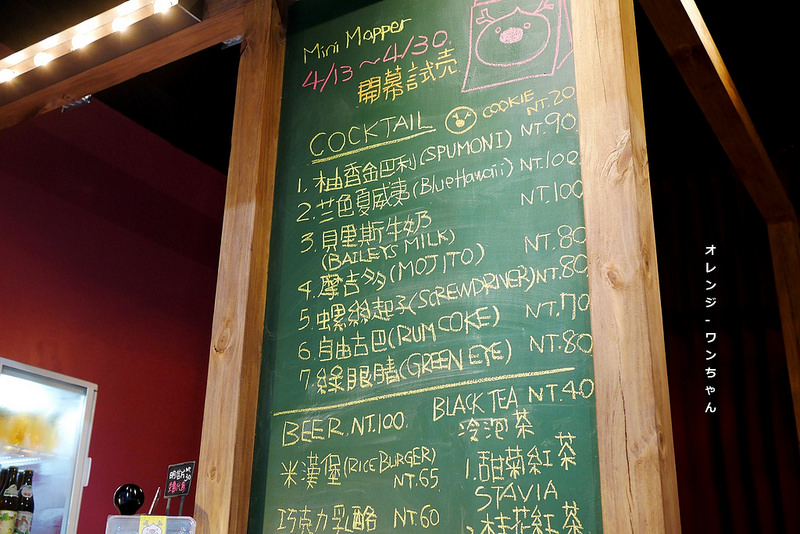 Mini Mapper
4/13~4/30
開幕試売
COCKTAIL COOKIE NT.20
1. 柚香金巴利(SPUMONI) NT.90
2. 兰色夏威夷(Blue Hawaii) NT.100
3. 貝里斯牛奶 NT.100
(BAILEYS MILK)
4. 摩吉多(MOJITO) NT.80
5. 螺絲起子(SCREWDRIVER) NT.80
6. 自由古巴(RUM COKE) NT.70
7. 綠眼睛(GREEN EYE) NT.80
BEER. NT.100.
米漢堡(RICE BURGER)
NT.65
巧克力乳酪 NT.60
BLACK TEA NT.40
冷泡茶
1. 甜菊紅茶
STAVIA
2. 桂花紅茶
オレンジ-ワンちゃん